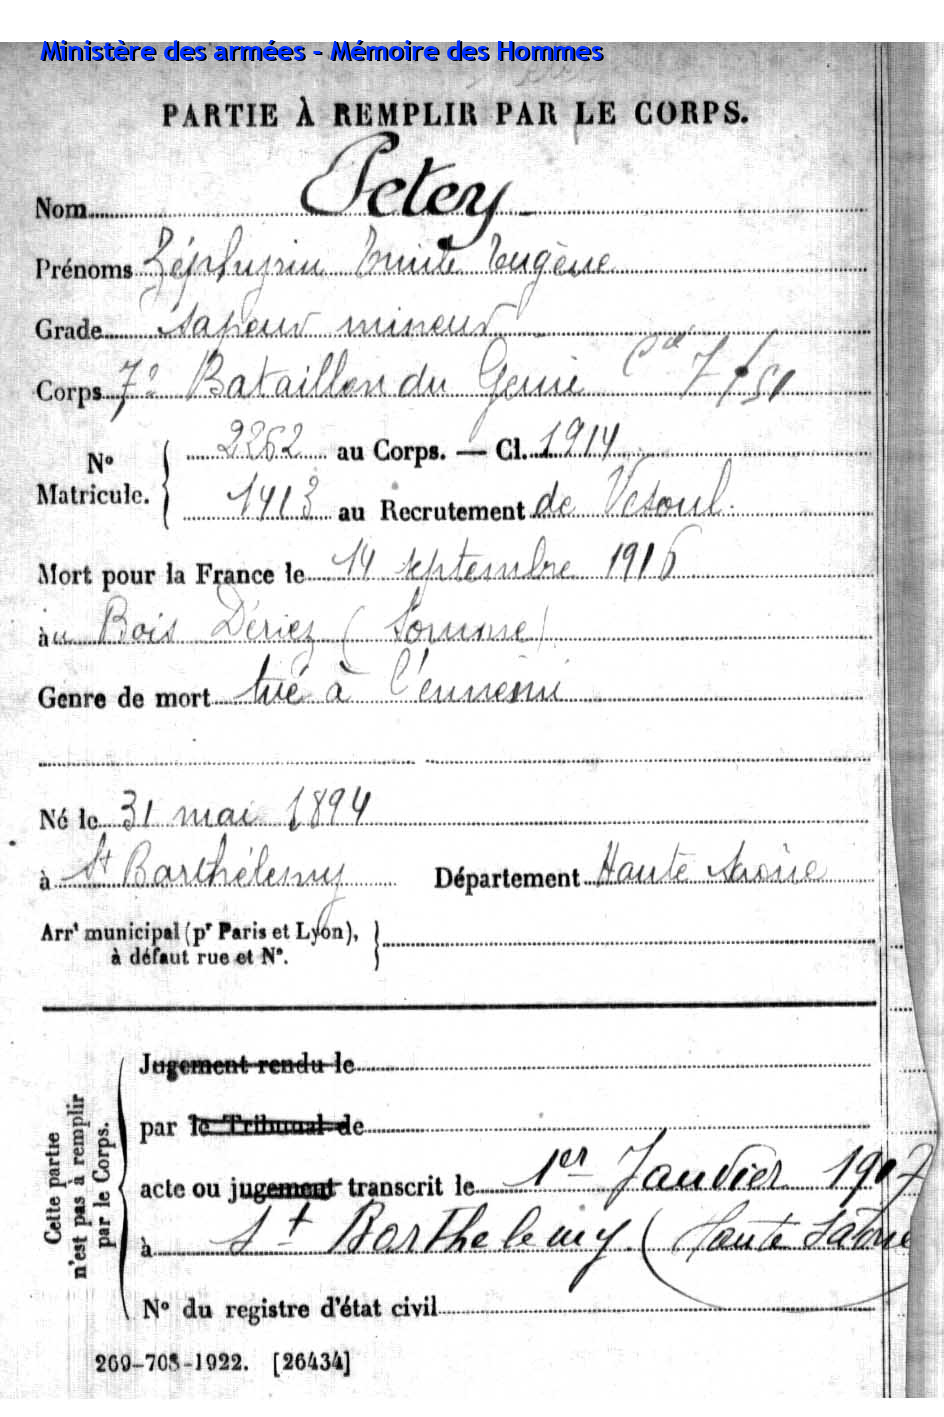 Ministère des armées – Mémoire des Hommes
PARTIE À REMPLIR PAR LE CORPS.
Nom Petey
Prénoms Zéphyrin Emile Eugène
Grade Sapeur mineur
Corps 7e Bataillon du Génie Cie 7/51
No Matricule. 2262 au Corps. — Cl. 1914
1413 au Recrutement de Vesoul.
Mort pour la France le 14 septembre 1916
àu Bois Dériez (Somme)
Genre de mort tué à l'ennemi
Né le 31 mai 1894
à St Barthélemy Département Haute Saône
Arrt municipal (pr Paris et Lyon),
à défaut rue et No.
Cette partie n'est pas à remplir par le Corps.
Jugement rendu le
par le Tribunal de
acte ou jugement transcrit le 1er Janvier 1917
à St Barthelemy (Haute Saône
No du registre d'état civil
269-708-1922. [26434]